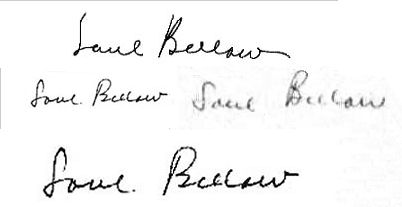 Saul Bellow
Saul Bellow Saul Bellow
Saul Bellow